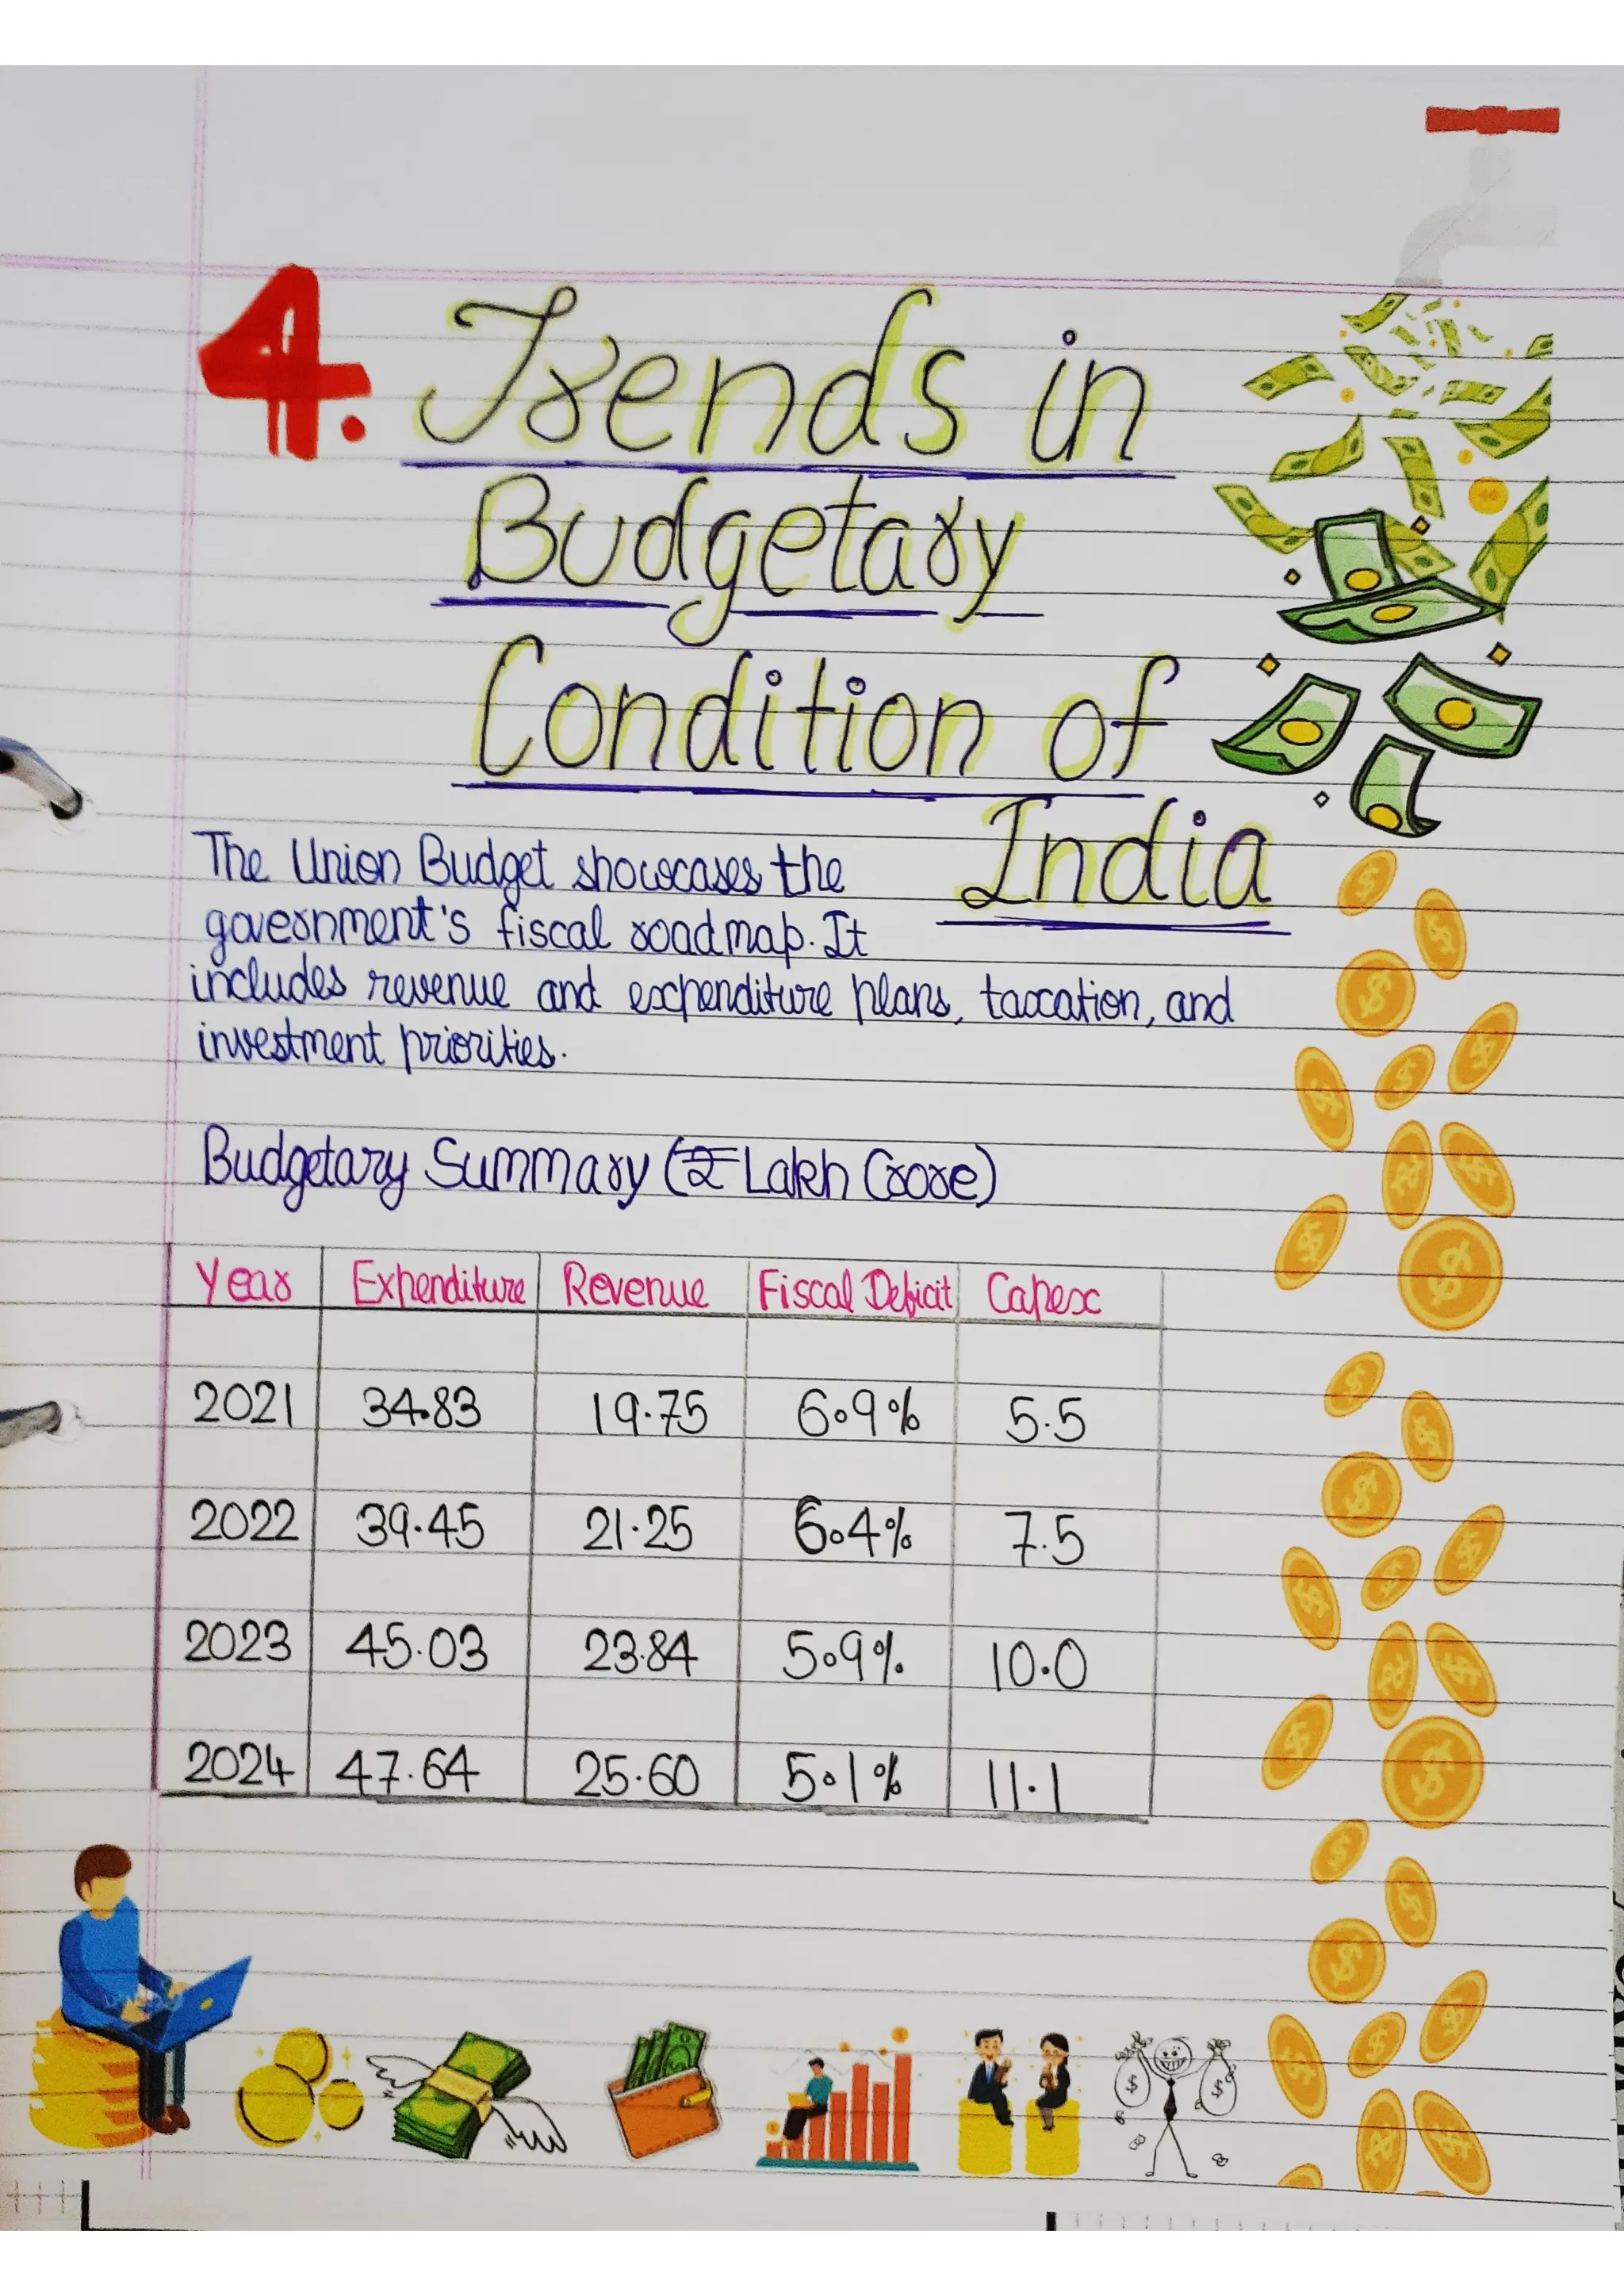 4. Trends in
Budgetary
Condition of
India
The Union Budget showcases the
government's fiscal roadmap. It
includes revenue and expenditure plans, taxation, and
investment priorities.
Budgetary Summary (₹ Lakh Crore)
Year Expenditure Revenue Fiscal Deficit Capex
2021 34.83 19.75 6.9% 5.5
2022 39.45 21.25 6.4% 7.5
2023 45.03 23.84 5.9% 10.0
2024 47.64 25.60 5.1% 11.1